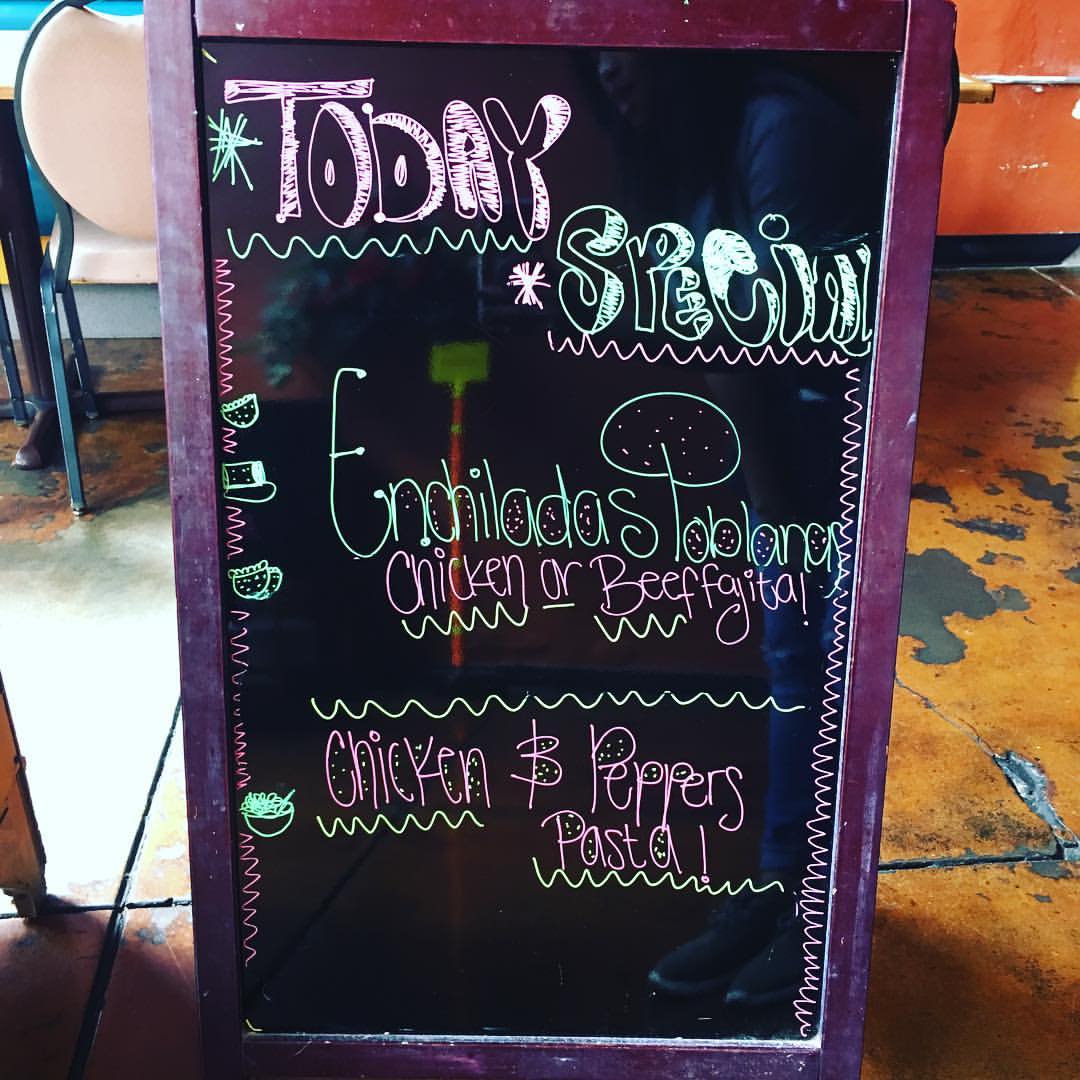 TODAY
SPECIAL
Enchiladas Poblanas
Chicken or Beef fajita!
Chicken & Peppers
Pasta!